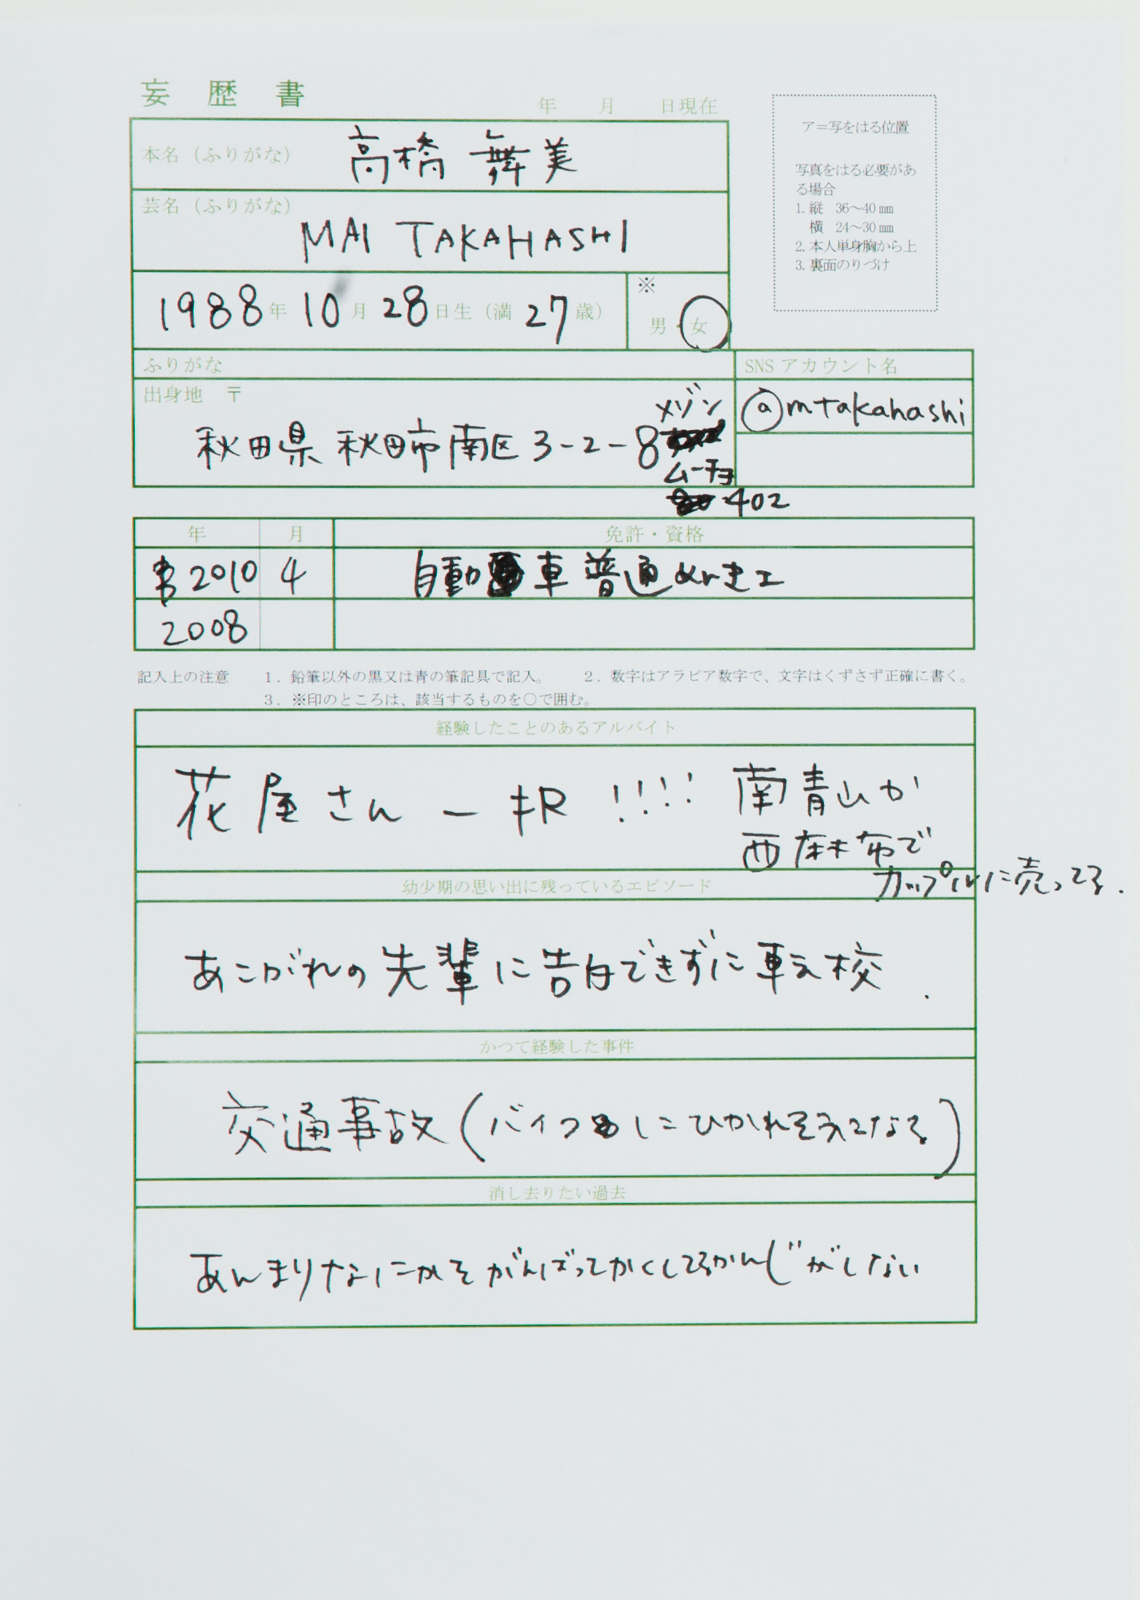 妄歴書
年 月 日現在
本名（ふりがな） 高橋 舞美
芸名（ふりがな） MAI TAKAHASHI
1988年 10月 28日生（満 27歳）
※
男・女
ア＝写をはる位置
写真をはる必要があ
る場合
1. 縦 36～40㎜
横 24～30㎜
2. 本人単身胸から上
3. 裏面のりづけ
ふりがな
SNS アカウント名
出身地 〒
秋田県 秋田市南区 3-2-8
メゾン
ムーチョ
402
@mtakahashi
年 月 免許・資格
2010 4 自動車普通めんきょ
2008
記入上の注意 1．鉛筆以外の黒又は青の筆記具で記入。 2．数字はアラビア数字で、文字はくずさず正確に書く。
3．※印のところは、該当するものを○で囲む。
経験したことのあるアルバイト
花屋さん一択 !!!! 南青山か
西麻布で
カップルに売ってる.
幼少期の思い出に残っているエピソード
あこがれの先輩に告白できずに転校.
かつて経験した事件
交通事故（バイクにひかれそうになる）
消し去りたい過去
あんまりなにかをがんばってかくしてるかんじがしない